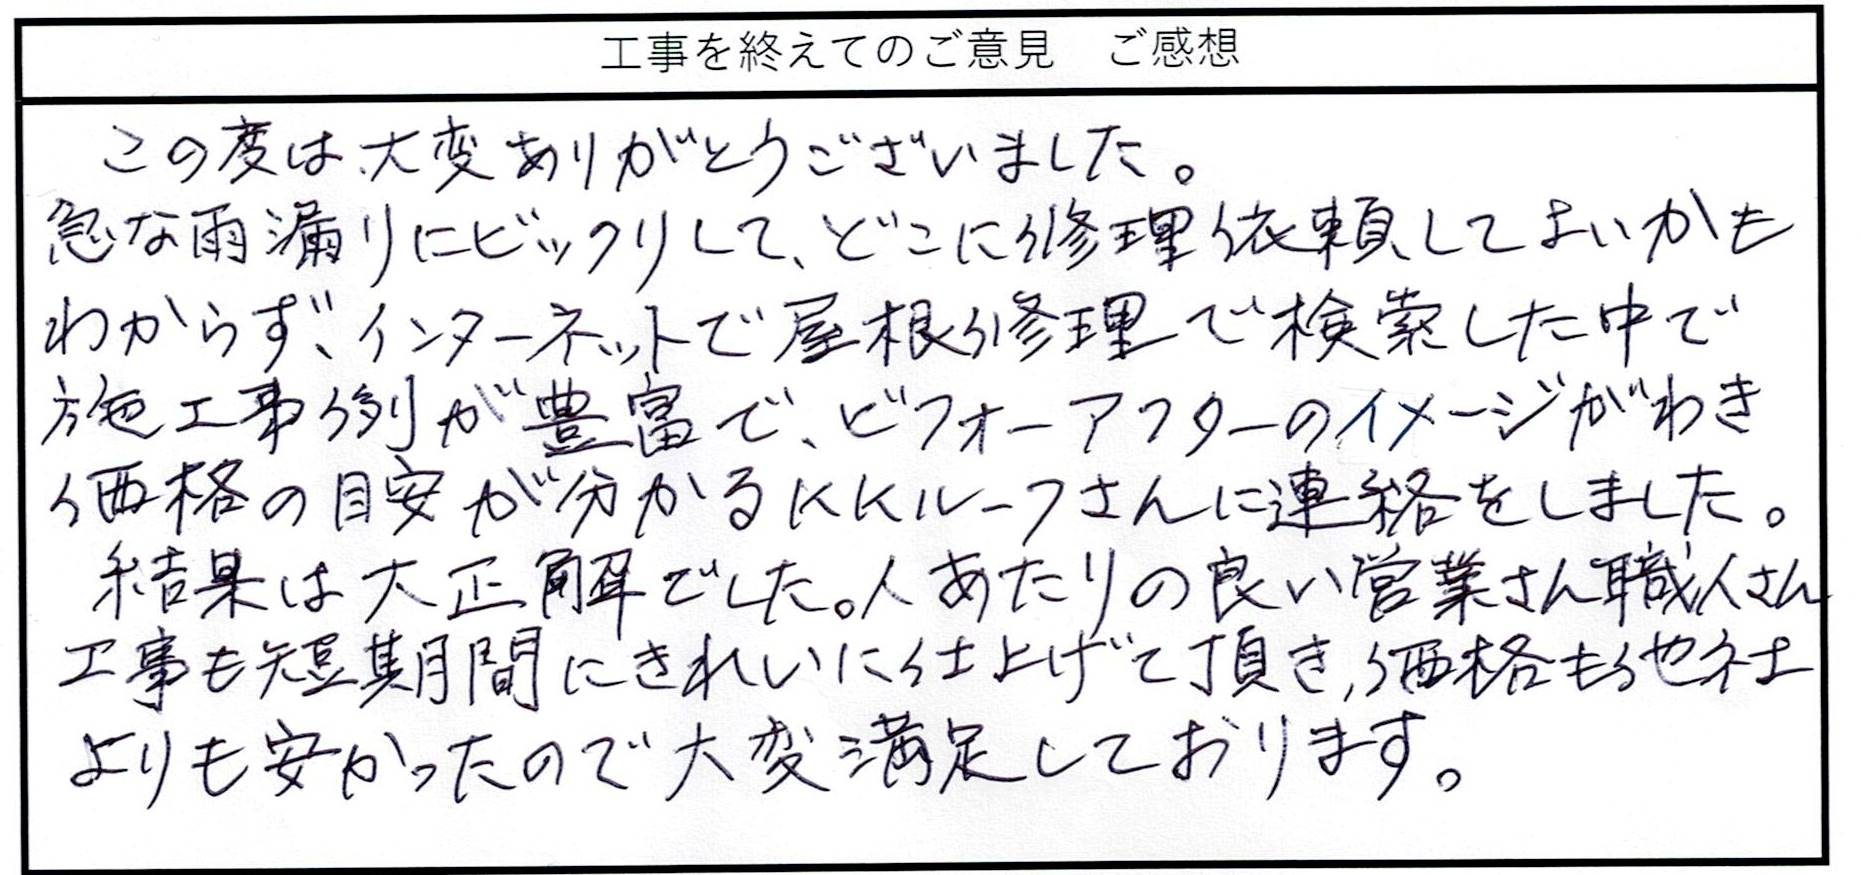 工事を終えてのご意見　ご感想
この度は、大変ありがとうございました。
急な雨漏りにビックリして、どこに修理依頼してよいかも
わからず、インターネットで屋根修理で検索した中で
施工事例が豊富で、ビフォーアフターのイメージがわき
価格の目安が分かるKKルーフさんに連絡をしました。
結果は大正解でした。人あたりの良い営業さん職人さん
工事も短期間にきれいに仕上げて頂き、価格も他社
よりも安かったので大変満足しております。